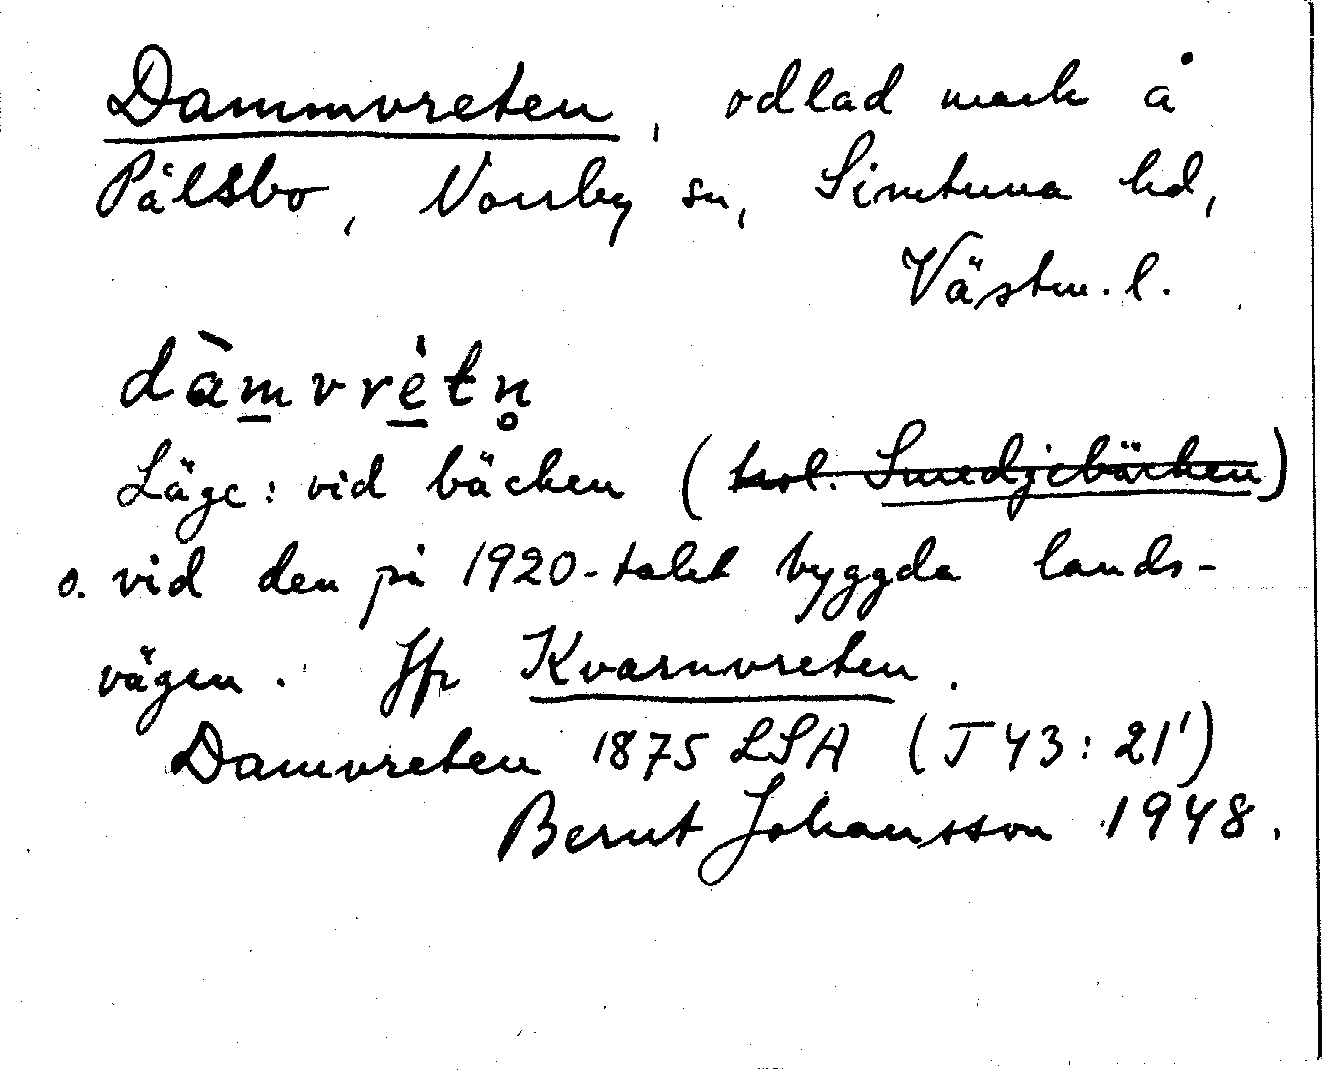 Dammvreten, odlad mark å
Pålsbo, Nor͏rby sn, Simtuna hd,
Västm. l.
dàm̲vrė̲tn̥
Läge: vid bäcken ( Smedjebäcken)
o. vid den på 1920-talet byggda lands-
vägen. Jfr Kvarnvreten.
Damvreten 1875 LSA (T 43:21')
Bernt Johansson 1948.